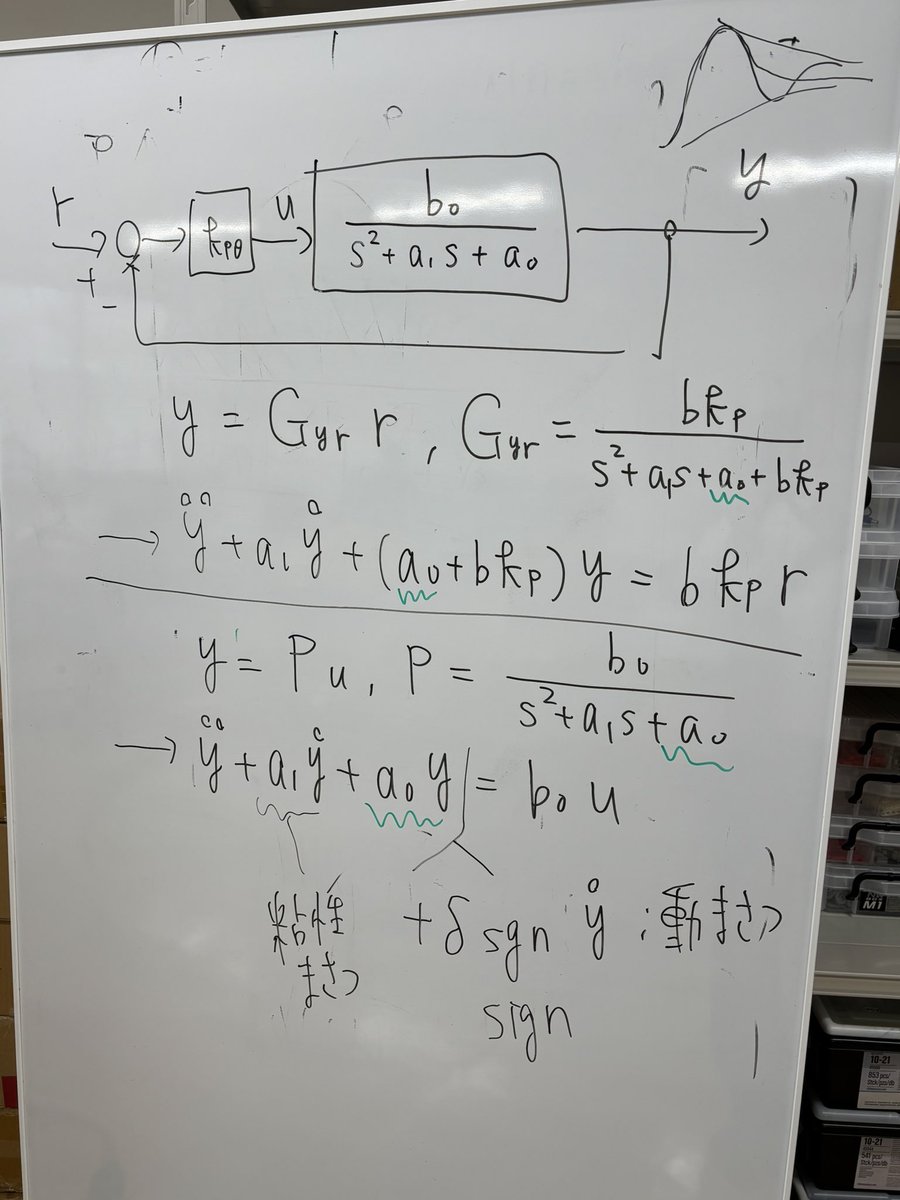 r + - k_{pθ} u b₀ / (s² + a₁s + a₀) y
y = G_{yr} r , G_{yr} = bk_p / (s² + a₁s + a₀ + bk_p)
→ ÿ + a₁ẏ + (a₀ + bk_p) y = bk_p r
y = Pu, P = b₀ / (s² + a₁s + a₀)
→ ÿ + a₁ẏ + a₀y = b₀u
粘性
まさつ
+ δ sgn ẏ : 動まさつ
sign
M1
10-21
853 pcs/
10-21
541 pcs/